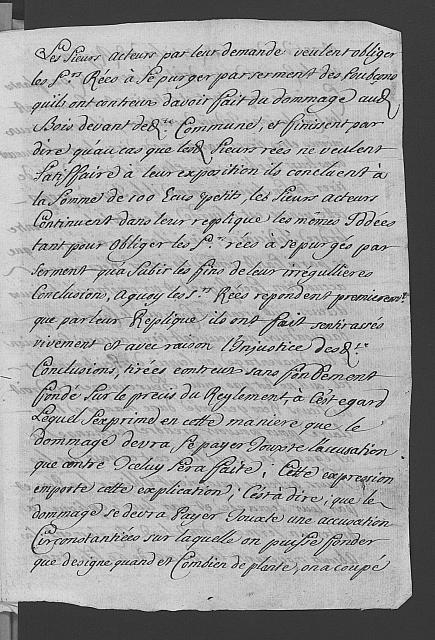 Les Sieurs acteurs par leur demande veulent obliger
les S.rs Rées à Se purger par serment des
quils ont contreux davoir fait du dommage aud.
Bois devant de Commune, et finissent par
dire quau cas que les d. Sieurs rées ne veulent
Satiffaire à leur exposition ils concluent à
la Somme de 100 Ecus petits, les Sieurs acteurs
Continuent dans leur replique les mêmes Iddées
tant pour obliger les S.rs rées à se purgés par
Serment qu'a Subir les fins de leur irrégullieres
Conclusions, a quoy les S.rs Rées repondent premierem.t
que par leur Replique ils ont fait sentir assés
vivement et avec raison l'Injustice des d.tes
Conclusions, tirées contreux sans fondement
fondé sur le précis du Reglement à cest egard
Lequel s'exprime en cette maniere que le
dommage devra se payer Jouxte l'accusation
que contre Iceluy sera faite ; Cette expression
emporte cette explication ; C'est à dire ; que le
dommage se devra Payer Jouxte une accusation
Circonstantiées sur laquelle on puisse fonder
que designe, quand et Combien de plante, on a coupé